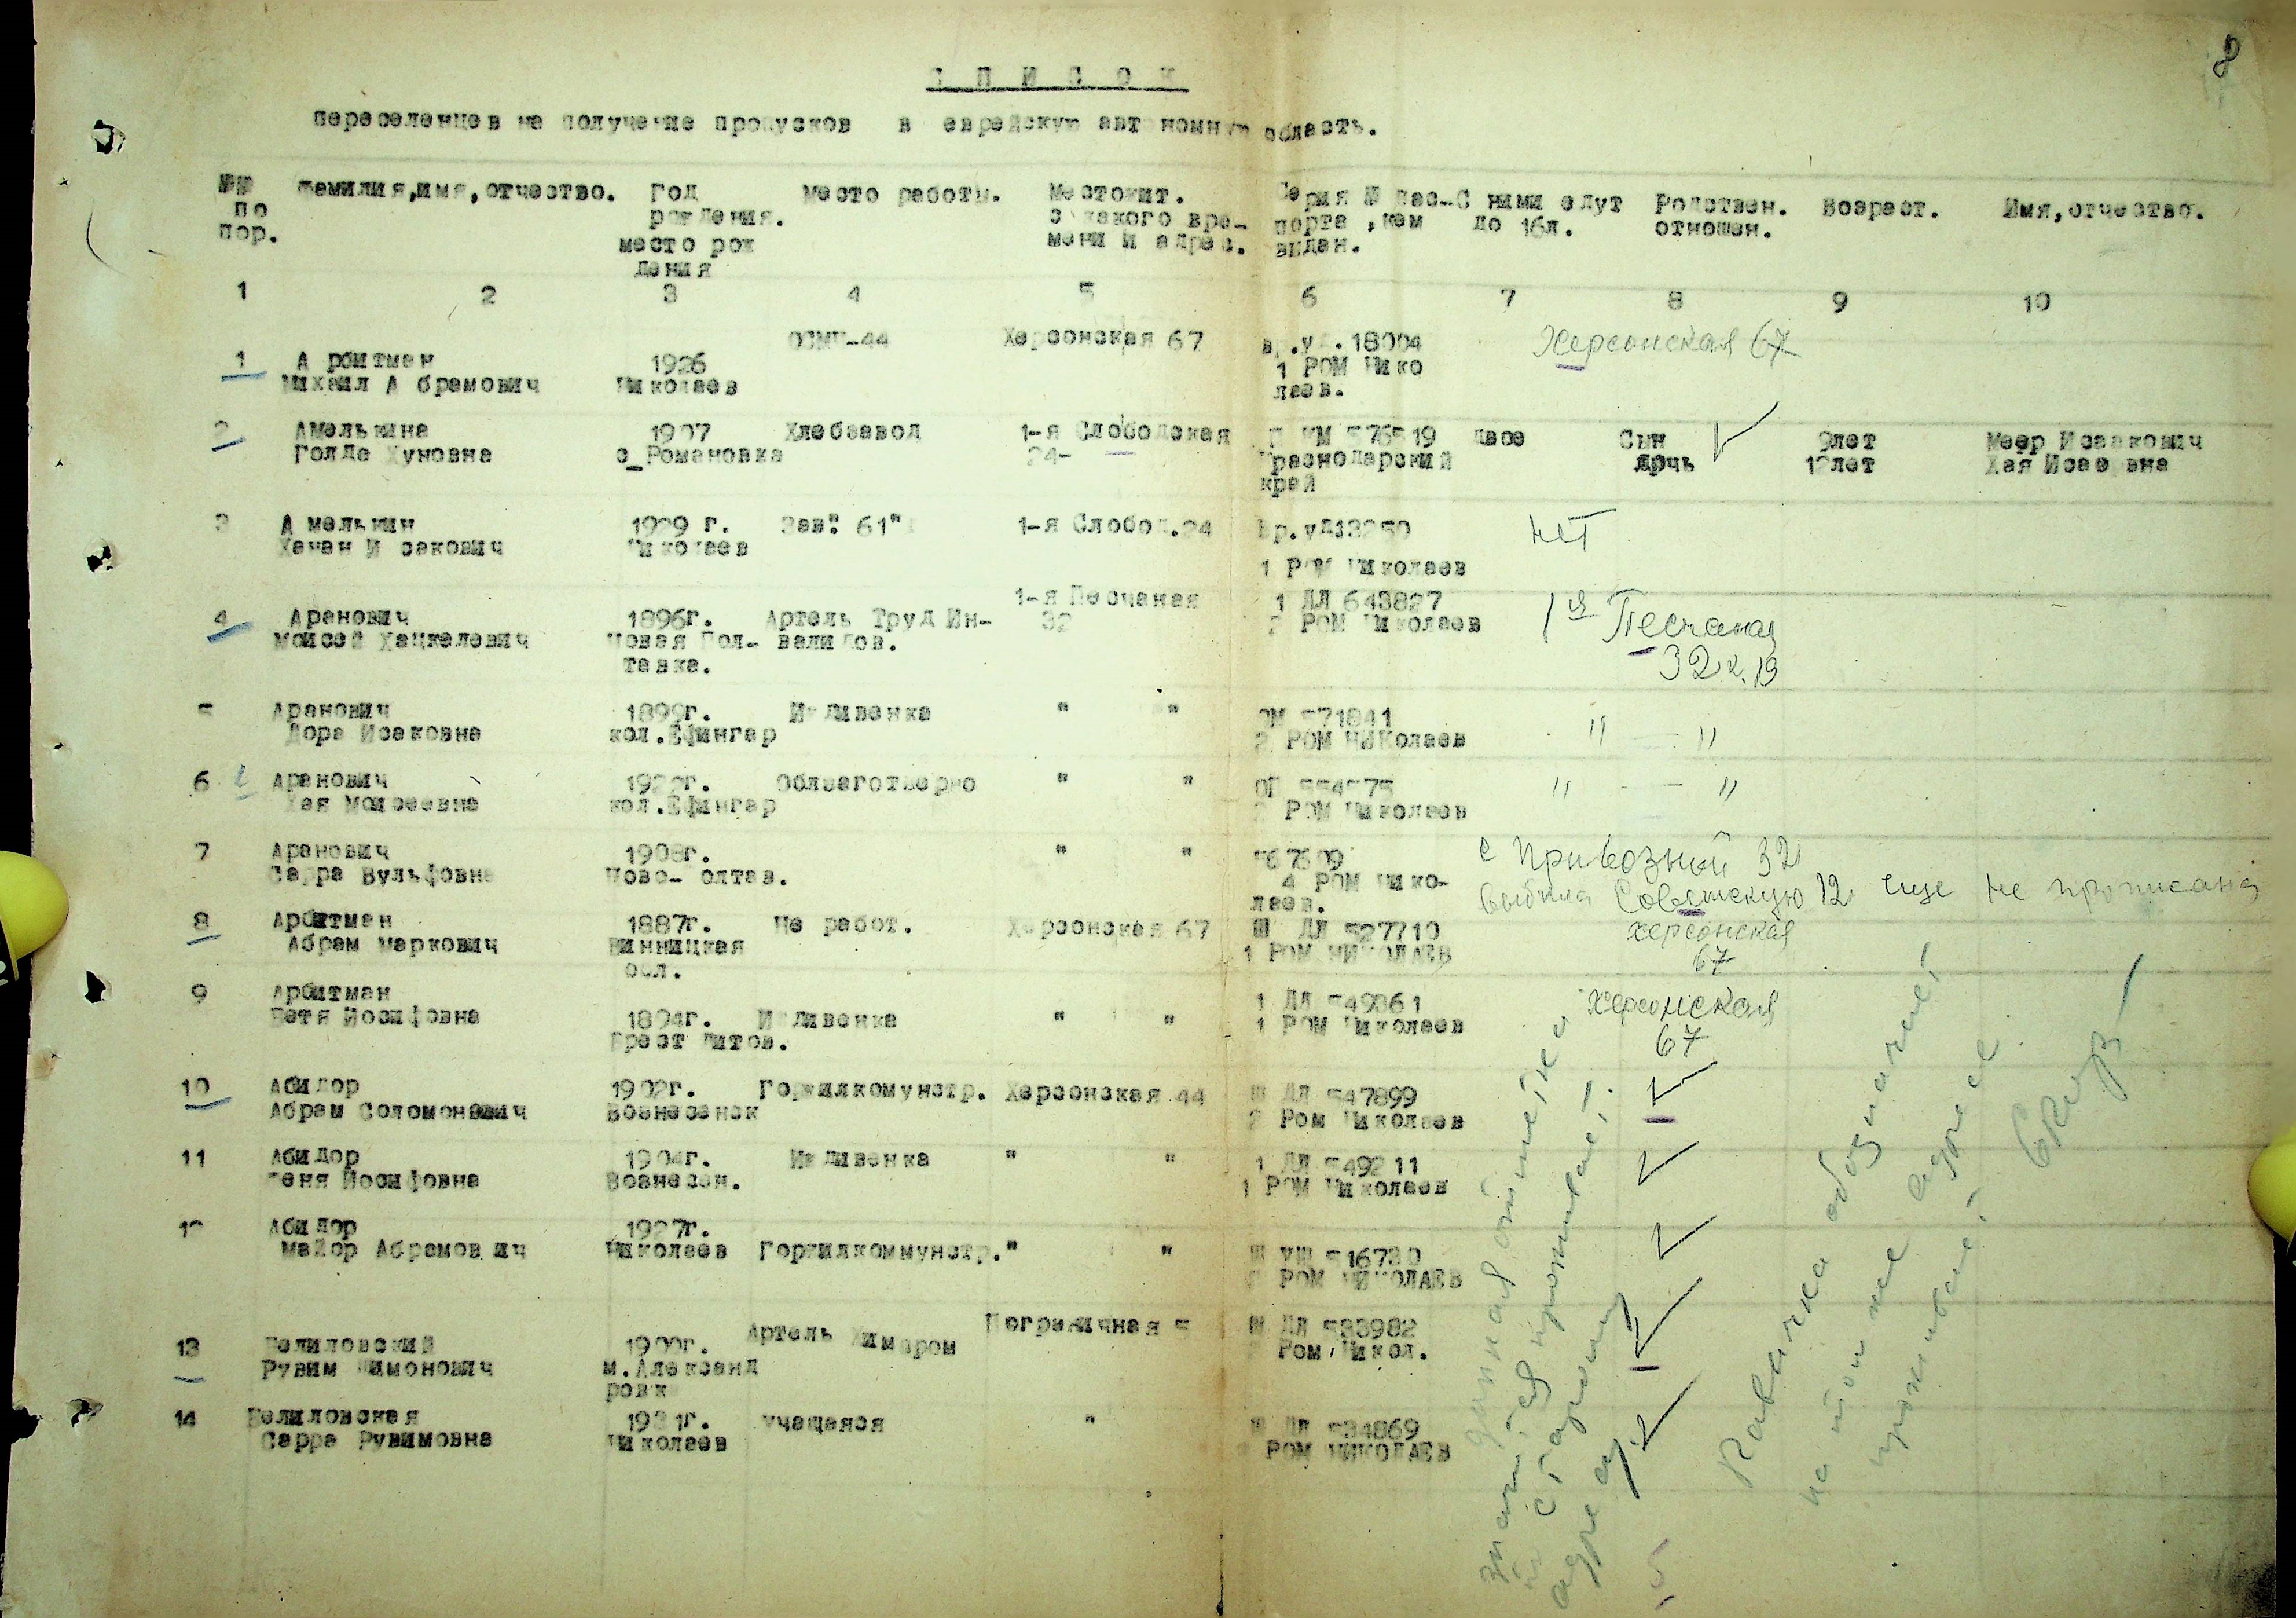 8
СПИСОК
переселенцев на получение пропусков в еврейскую автономную область.
№№ по пор.
Фамилия,имя,отчество.
Год рождения. место рождения
Место работы.
Местожит. с какого времени и адрес.
Серия № паспорта ,кем выдан.
С ними едут до 16л.
Родствен. отношен.
Возраст.
Имя,отчество.
1 2 3 4 5 6 7 8 9 10
ОСМЧ-44 Херсонская 67 вр.уд.18004 Херсонская 67
1 Арбитман 1926 1 РОМ Нико
Михаил Абрамович Николаев лаев.
2 Амелькина 1907 Хлебзавод 1-я Слободская двое Сын 9лет Меер Исаакович
Голда Хуновна с_Романовка 24- Краснодарский дочь 12лет Хая Исаевна
край
3 Амелькин 1929 г. Зав." 61" 1-я Слобод.24 Вр.уд13250 нет
Ханан Исакович Николаев
1 РОМ Николаев
1-я Песчаная 1 ДЛ 643827 1я Песчаная
4 Аранович 1896г. Артель Труд Ин- 32 2 РОМ Николаев 32 к.19
Моисей Хацкелевич Новая Пол- валидов.
тавка.
5 Аранович 1899г. Иждивенка " " 571841
Дора Исаковна кол.Ефингар 2 РОМ НИКолаев " - "
6 Аранович Облзаготзерно " " " - - "
Хая Моисеевна кол.Ефингар РОМ Николаев
7 Аранович 1908г. " " с Привозной 32
Сарра Вульфовна Ново-Полтав. 4 РОМ Нико- выбыла Советскую 12 еще не прописана
лаев.
8 Арбитман 1887г. Не работ. Херсонская 67 Ш ДЛ 527710 Херсонская
Абрам Маркович Винницкая 1 РОМ НИКОЛАЕВ 67
обл.
9 Арбитман 1 ДЛ 549361 Херсонская
Бетя Иосифовна 1894г. Иждивенка " " 1 РОМ Николаев 67
Брест Литов.
10 Абидор 1902г. Горжилкомунстр. Херсонская 44 Ш ДЛ 547899
Абрам Соломонович Вознесенск 2 Ром Николаев
11 Абидор 1904г. Иждивенка " " 1 ДЛ 549211
Геня Иосифовна Вознесен. 1 РОМ Николаев
12 Абидор 1927г.
Майор Абрамович Николаев Горжилкоммунстр." " 516730
РОМ НИКОЛАЕВ
13 Белиловский 1900г. Артель Химпром Пограничная 5 Ш ДЛ 533982
Рувим Шимонович м.Александ Ром,Никол.
ровк
14 Белиловская 1931г. учащаяся " 534869
Сарра Рувимовна Николаев РОМ НИКОЛАЕВ
данная отметка
значит.
проживает.
по старому
адресу.
Кавычка обозначает
на том же адресе
проживает